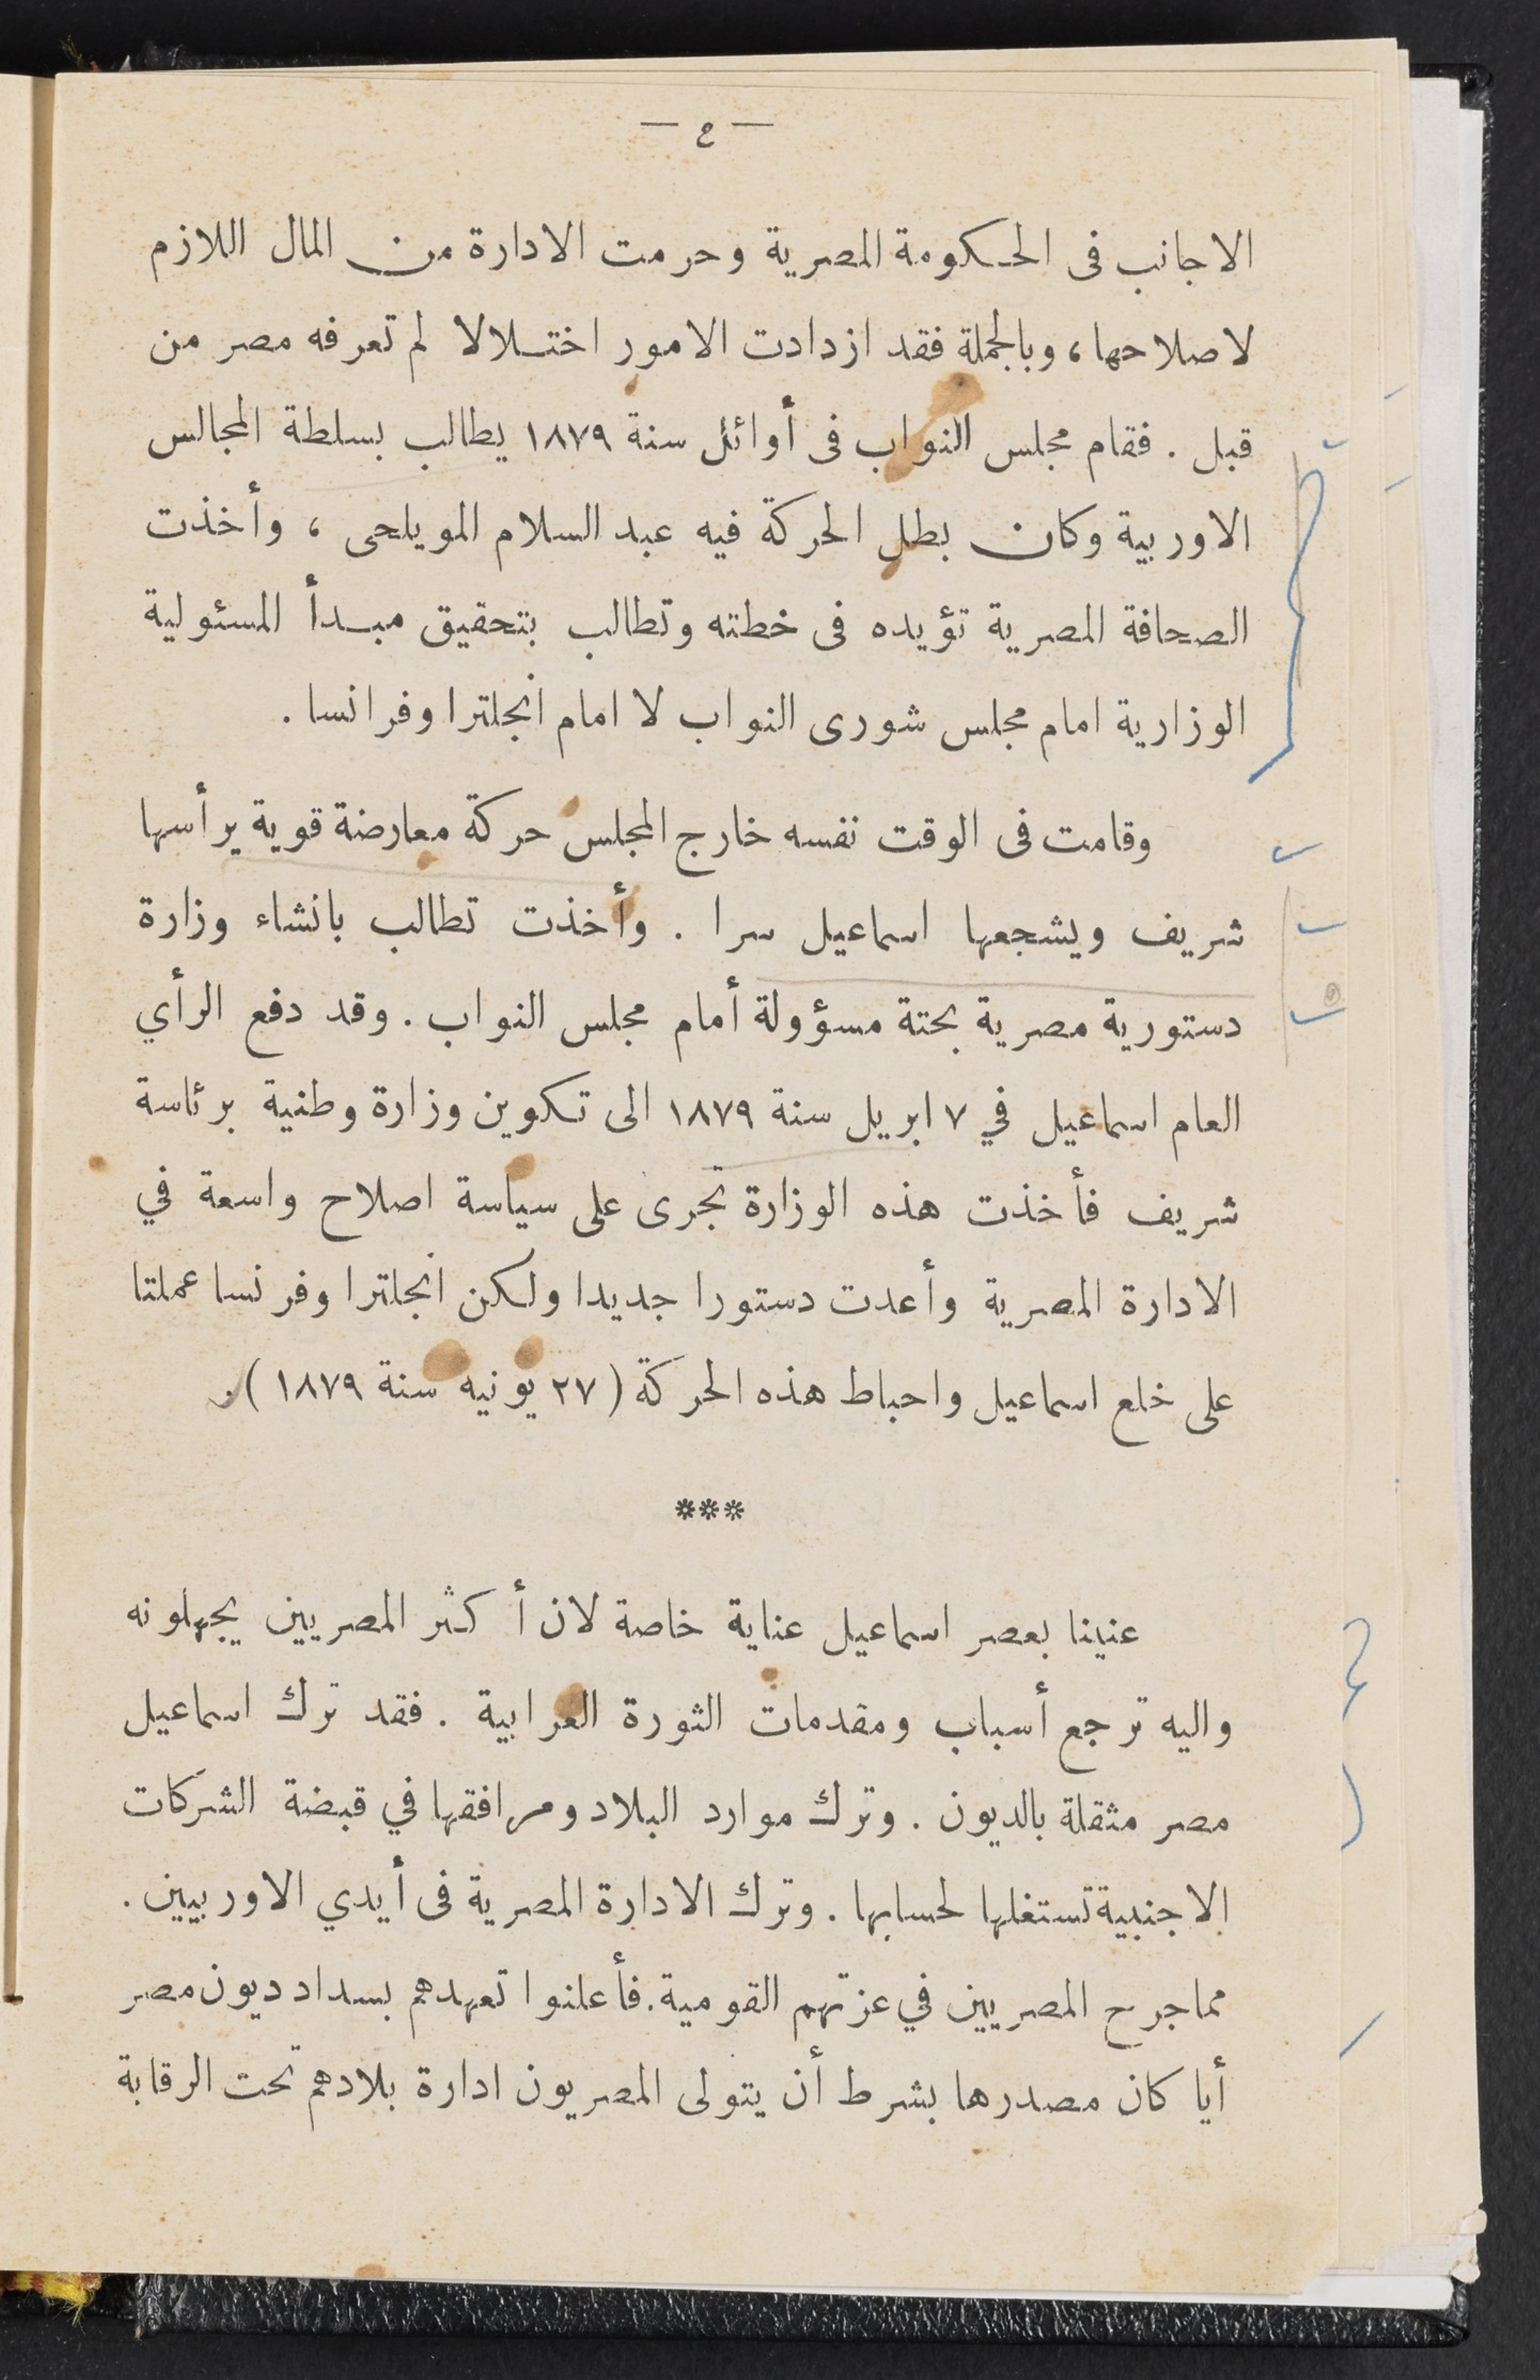 — ٤ —
الاجانب فى الحكومة المصرية وحرمت الادارة من المال اللازم
لاصلاحها، وبالجملة فقد ازدادت الامور اختلالا لم تعرفه مصر من
قبل . فقام مجلس النواب فى أوائل سنة ١٨٧٩ يطالب بسلطة المجالس
الاوربية وكان بطل الحركة فيه عبد السلام المويلحى ، وأخذت
الصحافة المصرية تؤيده فى خطته وتطالب بتحقيق مبدأ المسئولية
الوزارية امام مجلس شورى النواب لا امام انجلترا وفرانسا .
وقامت فى الوقت نفسه خارج المجلس حركة معارضة قوية يرأسها
شريف ويشجعها اسماعيل سرا . وأخذت تطالب بانشاء وزارة
دستورية مصرية بحتة مسؤولة أمام مجلس النواب . وقد دفع الرأي
العام اسماعيل في ٧ ابريل سنة ١٨٧٩ الى تكوين وزارة وطنية برئاسة
شريف فأخذت هذه الوزارة تجرى على سياسة اصلاح واسعة في
الادارة المصرية وأعدت دستورا جديدا ولكن انجلترا وفرنسا عملتا
على خلع اسماعيل واحباط هذه الحركة (٢٧ يونيه سنة ١٨٧٩).
***
عنينا بعصر اسماعيل عناية خاصة لان أكثر المصريين يجهلونه
واليه ترجع أسباب ومقدمات الثورة العرابية . فقد ترك اسماعيل
مصر مثقلة بالديون . وترك موارد البلاد ومرافقها في قبضة الشركات
الاجنبية تستغلها لحسابها . وترك الادارة المصرية فى أيدي الاوربيين .
مما جرح المصريين في عزتهم القومية. فأعلنوا تعهدهم بسداد ديون مصر
أيا كان مصدرها بشرط أن يتولى المصريون ادارة بلادهم تحت الرقابة